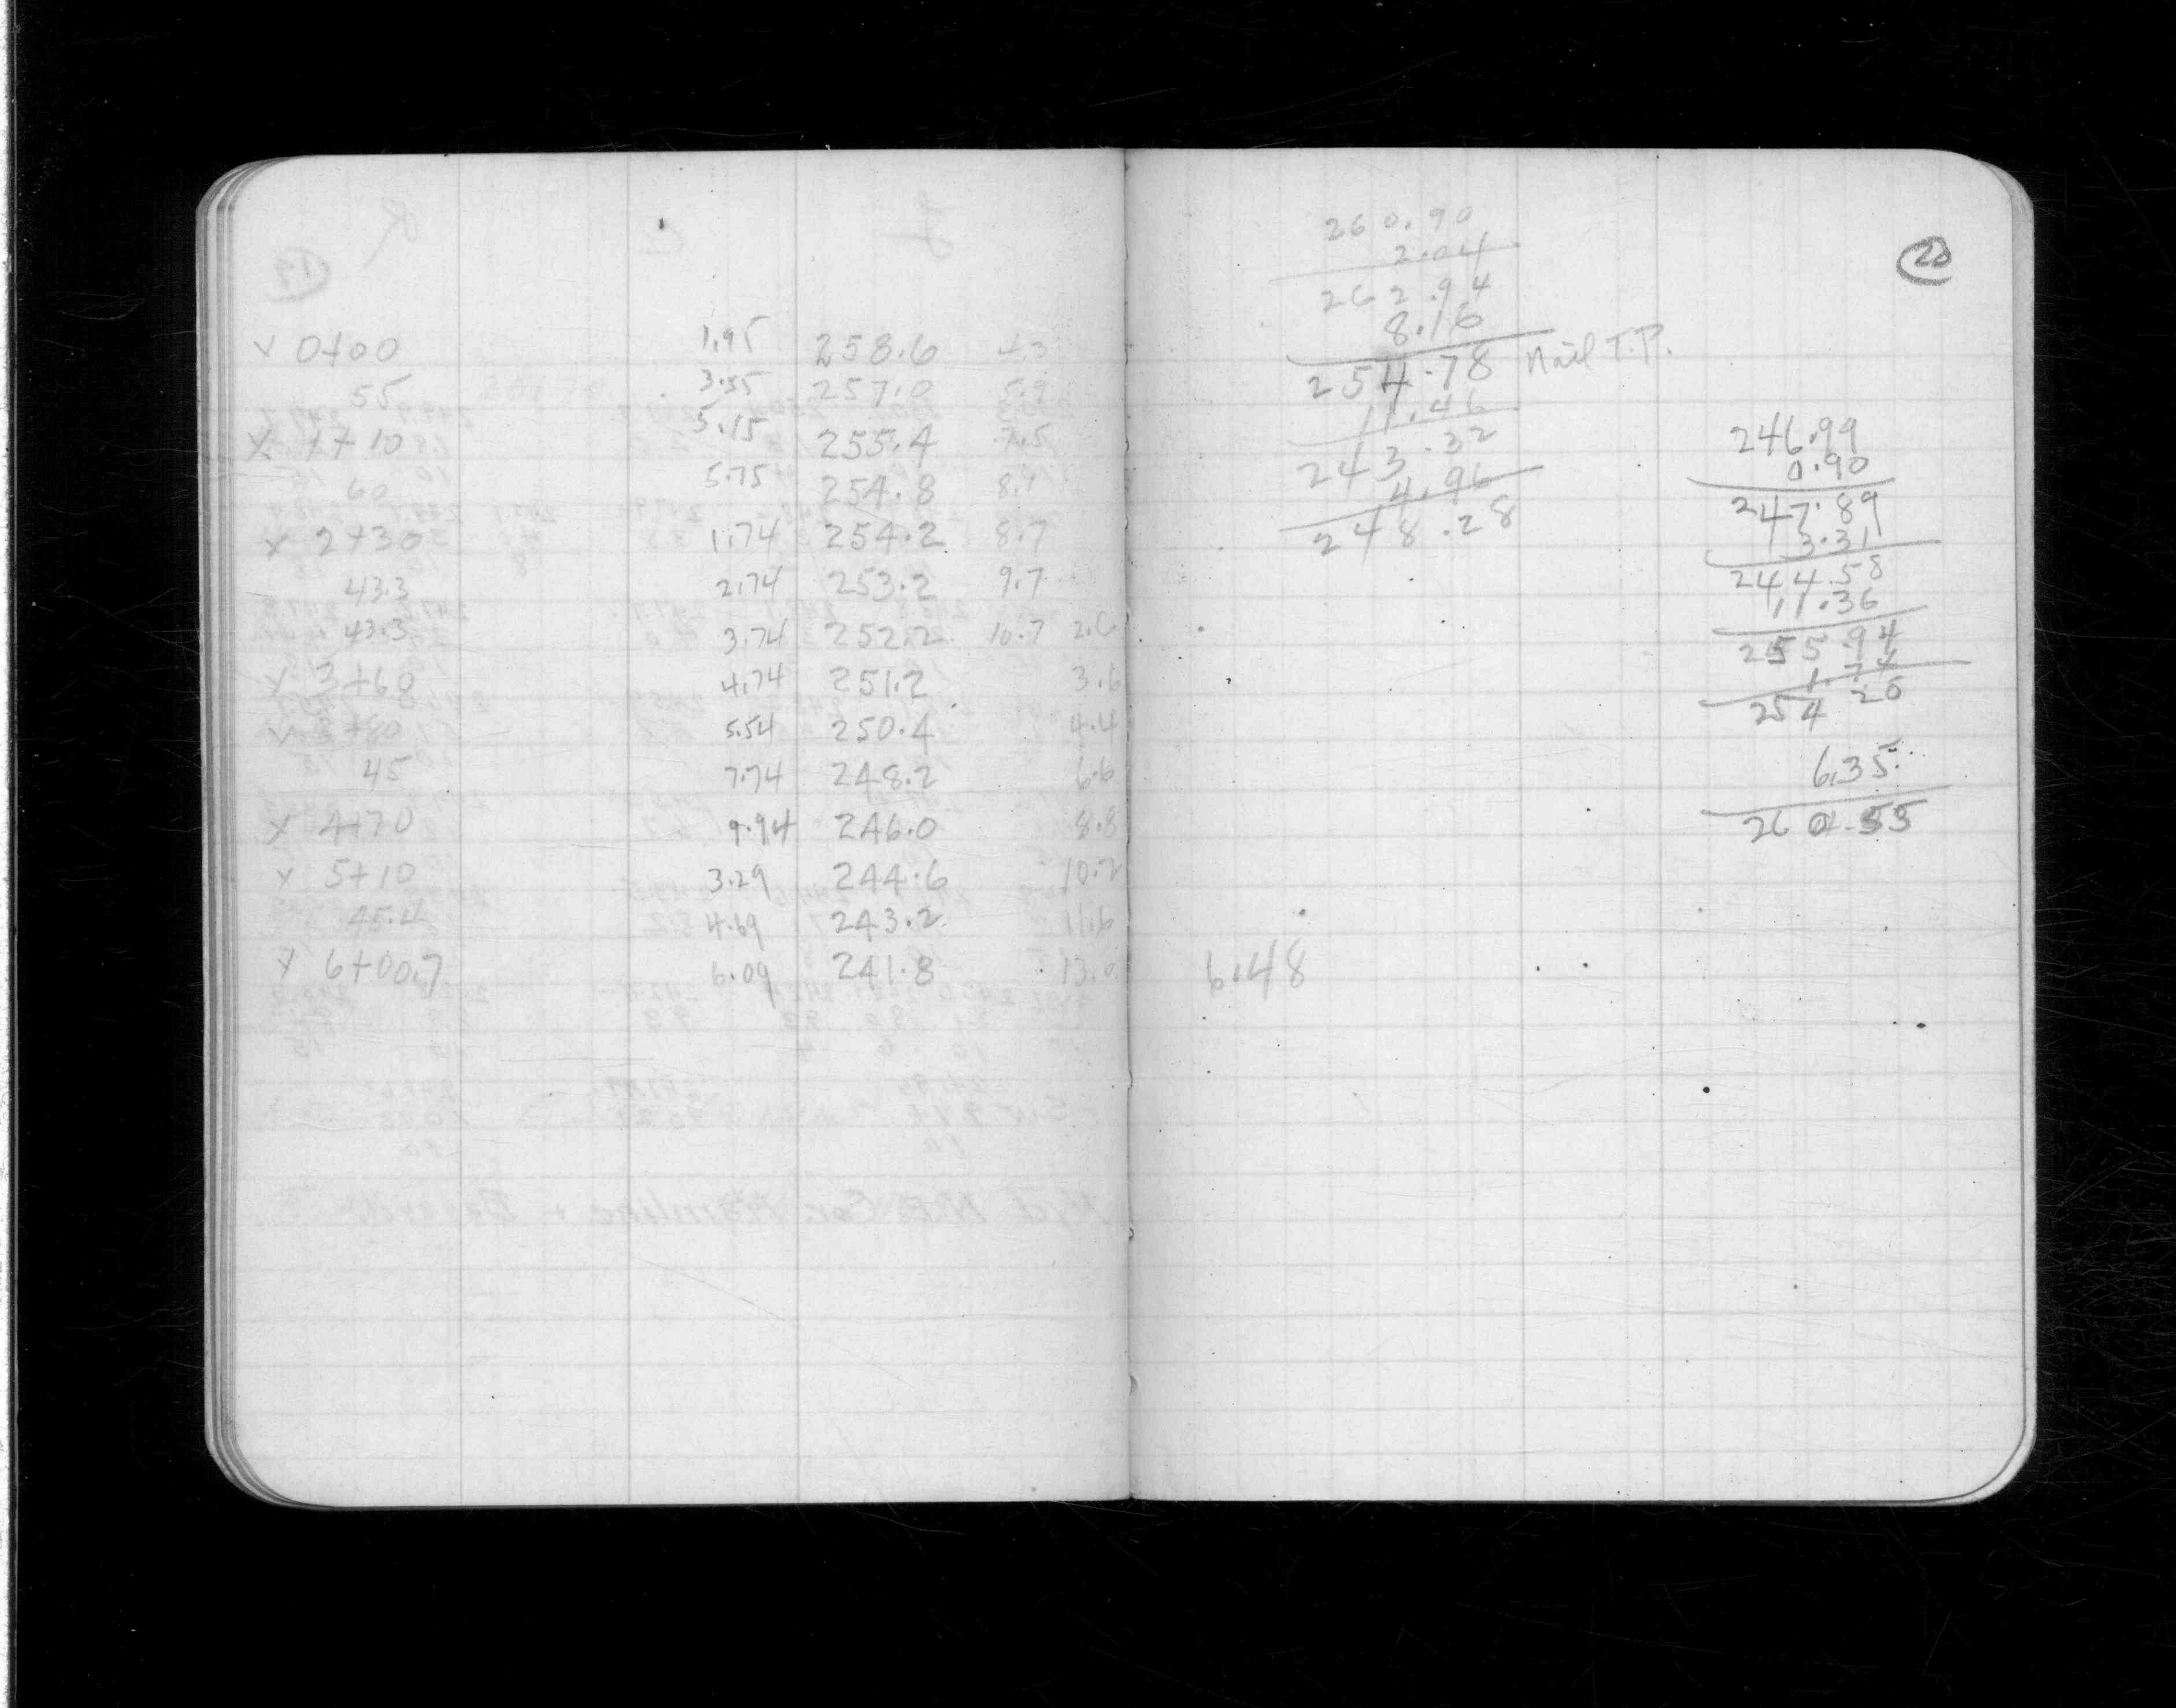 v 0+00 1.95 258.6 4.3
55 3.55 257.0 5.9
x 1+10 5.15 255.4 7.5
60 5.75 254.8 8.1
x 2+30 1.74 254.2 8.7
43.3 2.74 253.2 9.7
43.3 3.74 252.2 10.7 2.6
x 3+60 4.74 251.2 3.6
v 3+80 5.54 250.4 4.4
45 7.74 248.2 6.6
x 4+70 9.94 246.0 8.8
x 5+10 3.29 244.6 10.2
45.4 4.69 243.2 11.6
x 6+00.7 6.09 241.8 13.0
20
260.90
2.04
262.94
8.16
254.78 Nail T.P.
11.46
243.32
4.96
248.28
6.48
246.99
0.90
247.89
3.31
244.58
11.36
255.94
1.74
254 20
6.35
260.55